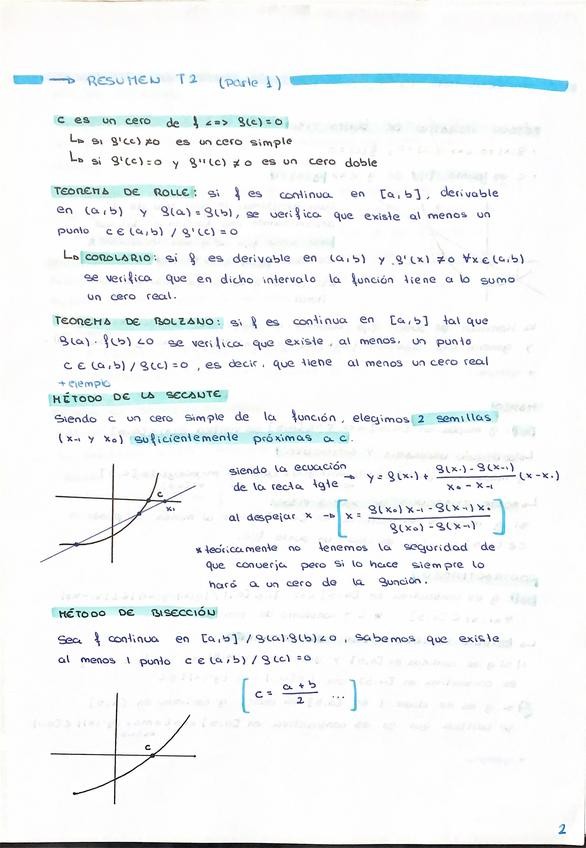 → RESUMEN T2 (parte 1)
c es un cero de f <=> f(c)=0
↳ si f'(c)≠0 es un cero simple
↳ si f'(c)=0 y f''(c)≠0 es un cero doble
TEOREMA DE ROLLE: si f es continua en [a,b], derivable
en (a,b) y f(a)=f(b), se verifica que existe al menos un
punto c∈(a,b) / f'(c)=0
↳ COROLARIO: si f es derivable en (a,b) y f'(x)≠0 ∀x∈(a,b)
se verifica que en dicho intervalo la función tiene a lo sumo
un cero real.
TEOREMA DE BOLZANO: si f es continua en [a,b] tal que
f(a)·f(b)<0 se verifica que existe, al menos, un punto
c∈(a,b) / f(c)=0, es decir, que tiene al menos un cero real
+ejemplo
MÉTODO DE LA SECANTE
Siendo c un cero simple de la función, elegimos 2 semillas
(x-1 y x0) suficientemente próximas a c.
c
x1
siendo la ecuación
de la recta tgte → y = f(x0) + (f(x0) - f(x-1))/(x0 - x-1) (x-x0)
al despejar x → [x = (f(x0)x-1 - f(x-1)x0)/(f(x0) - f(x-1))]
*teóricamente no tenemos la seguridad de
que converja pero si lo hace siempre lo
hará a un cero de la función.
MÉTODO DE BISECCIÓN
Sea f continua en [a,b] / f(a)·f(b)<0, sabemos que existe
al menos 1 punto c∈(a,b) / f(c)=0
[c = (a+b)/2 ...]
c
2